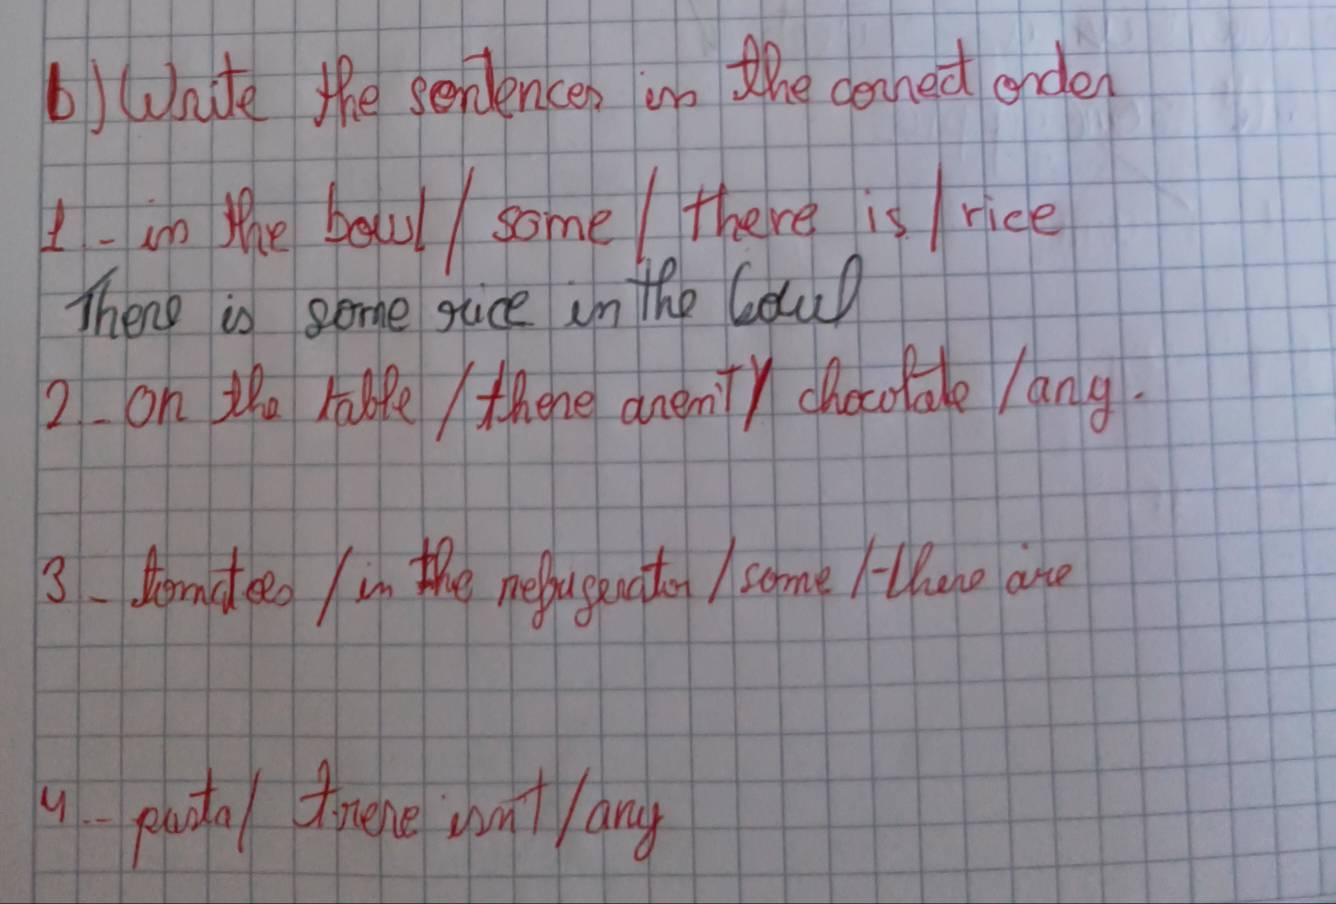 b) Write the sentences in the correct order
1 - in the bowl / some / there is / rice
There is some rice in the bowl
2 - on the table / there aren't / chocolate / any.
3 - tomatoes / in the refrigerator / some / there are
4 - pasta / there isn't / any